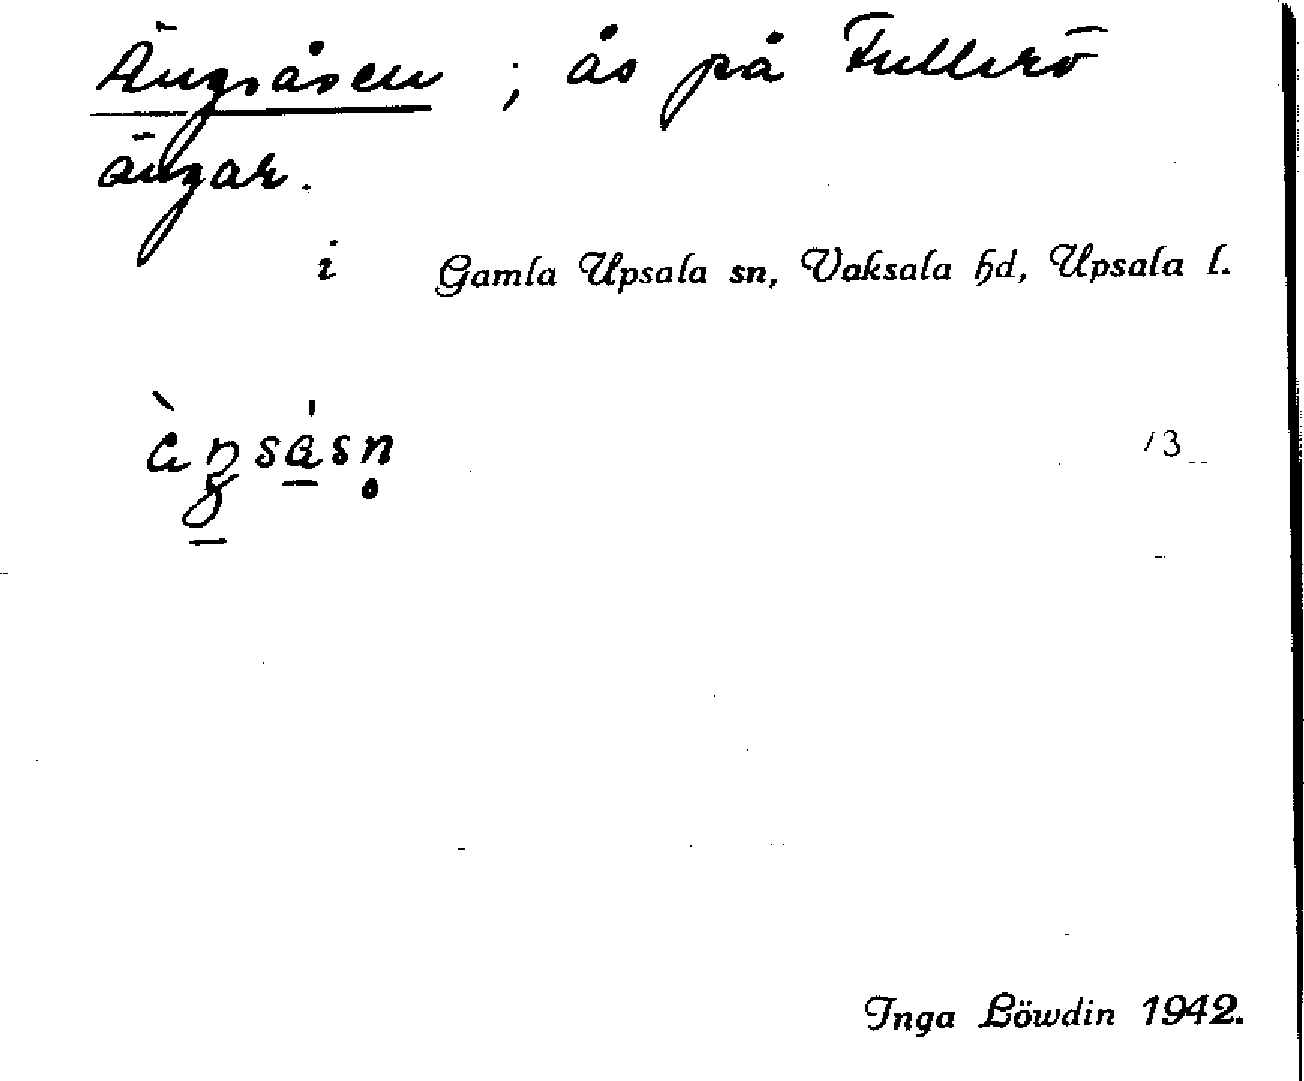 Ängsåsen ; ås på Fullerö
ängar.
i Gamla Upsala sn, Vaksala hd, Upsala l.
13
Inga Löwdin 1942.